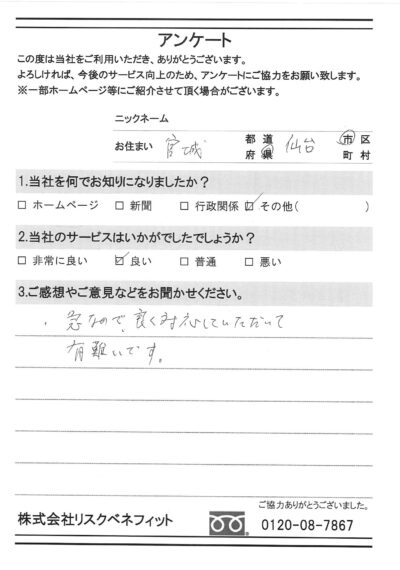 アンケート
この度は当社をご利用いただき、ありがとうございます。
よろしければ、今後のサービス向上のため、アンケートにご協力をお願い致します。
※一部ホームページ等にご紹介させて頂く場合がございます。
ニックネーム
お住まい 宮城 都道府県 仙台 市区町村
1.当社を何でお知りになりましたか？
□ ホームページ □ 新聞 □ 行政関係 ☑ その他( )
2.当社のサービスはいかがでしたでしょうか？
□ 非常に良い ☑ 良い □ 普通 □ 悪い
3.ご感想やご意見などをお聞かせください。
・急なので、良く対応していただいて
有難いです。
ご協力ありがとうございました。
株式会社リスクベネフィット 0120-08-7867